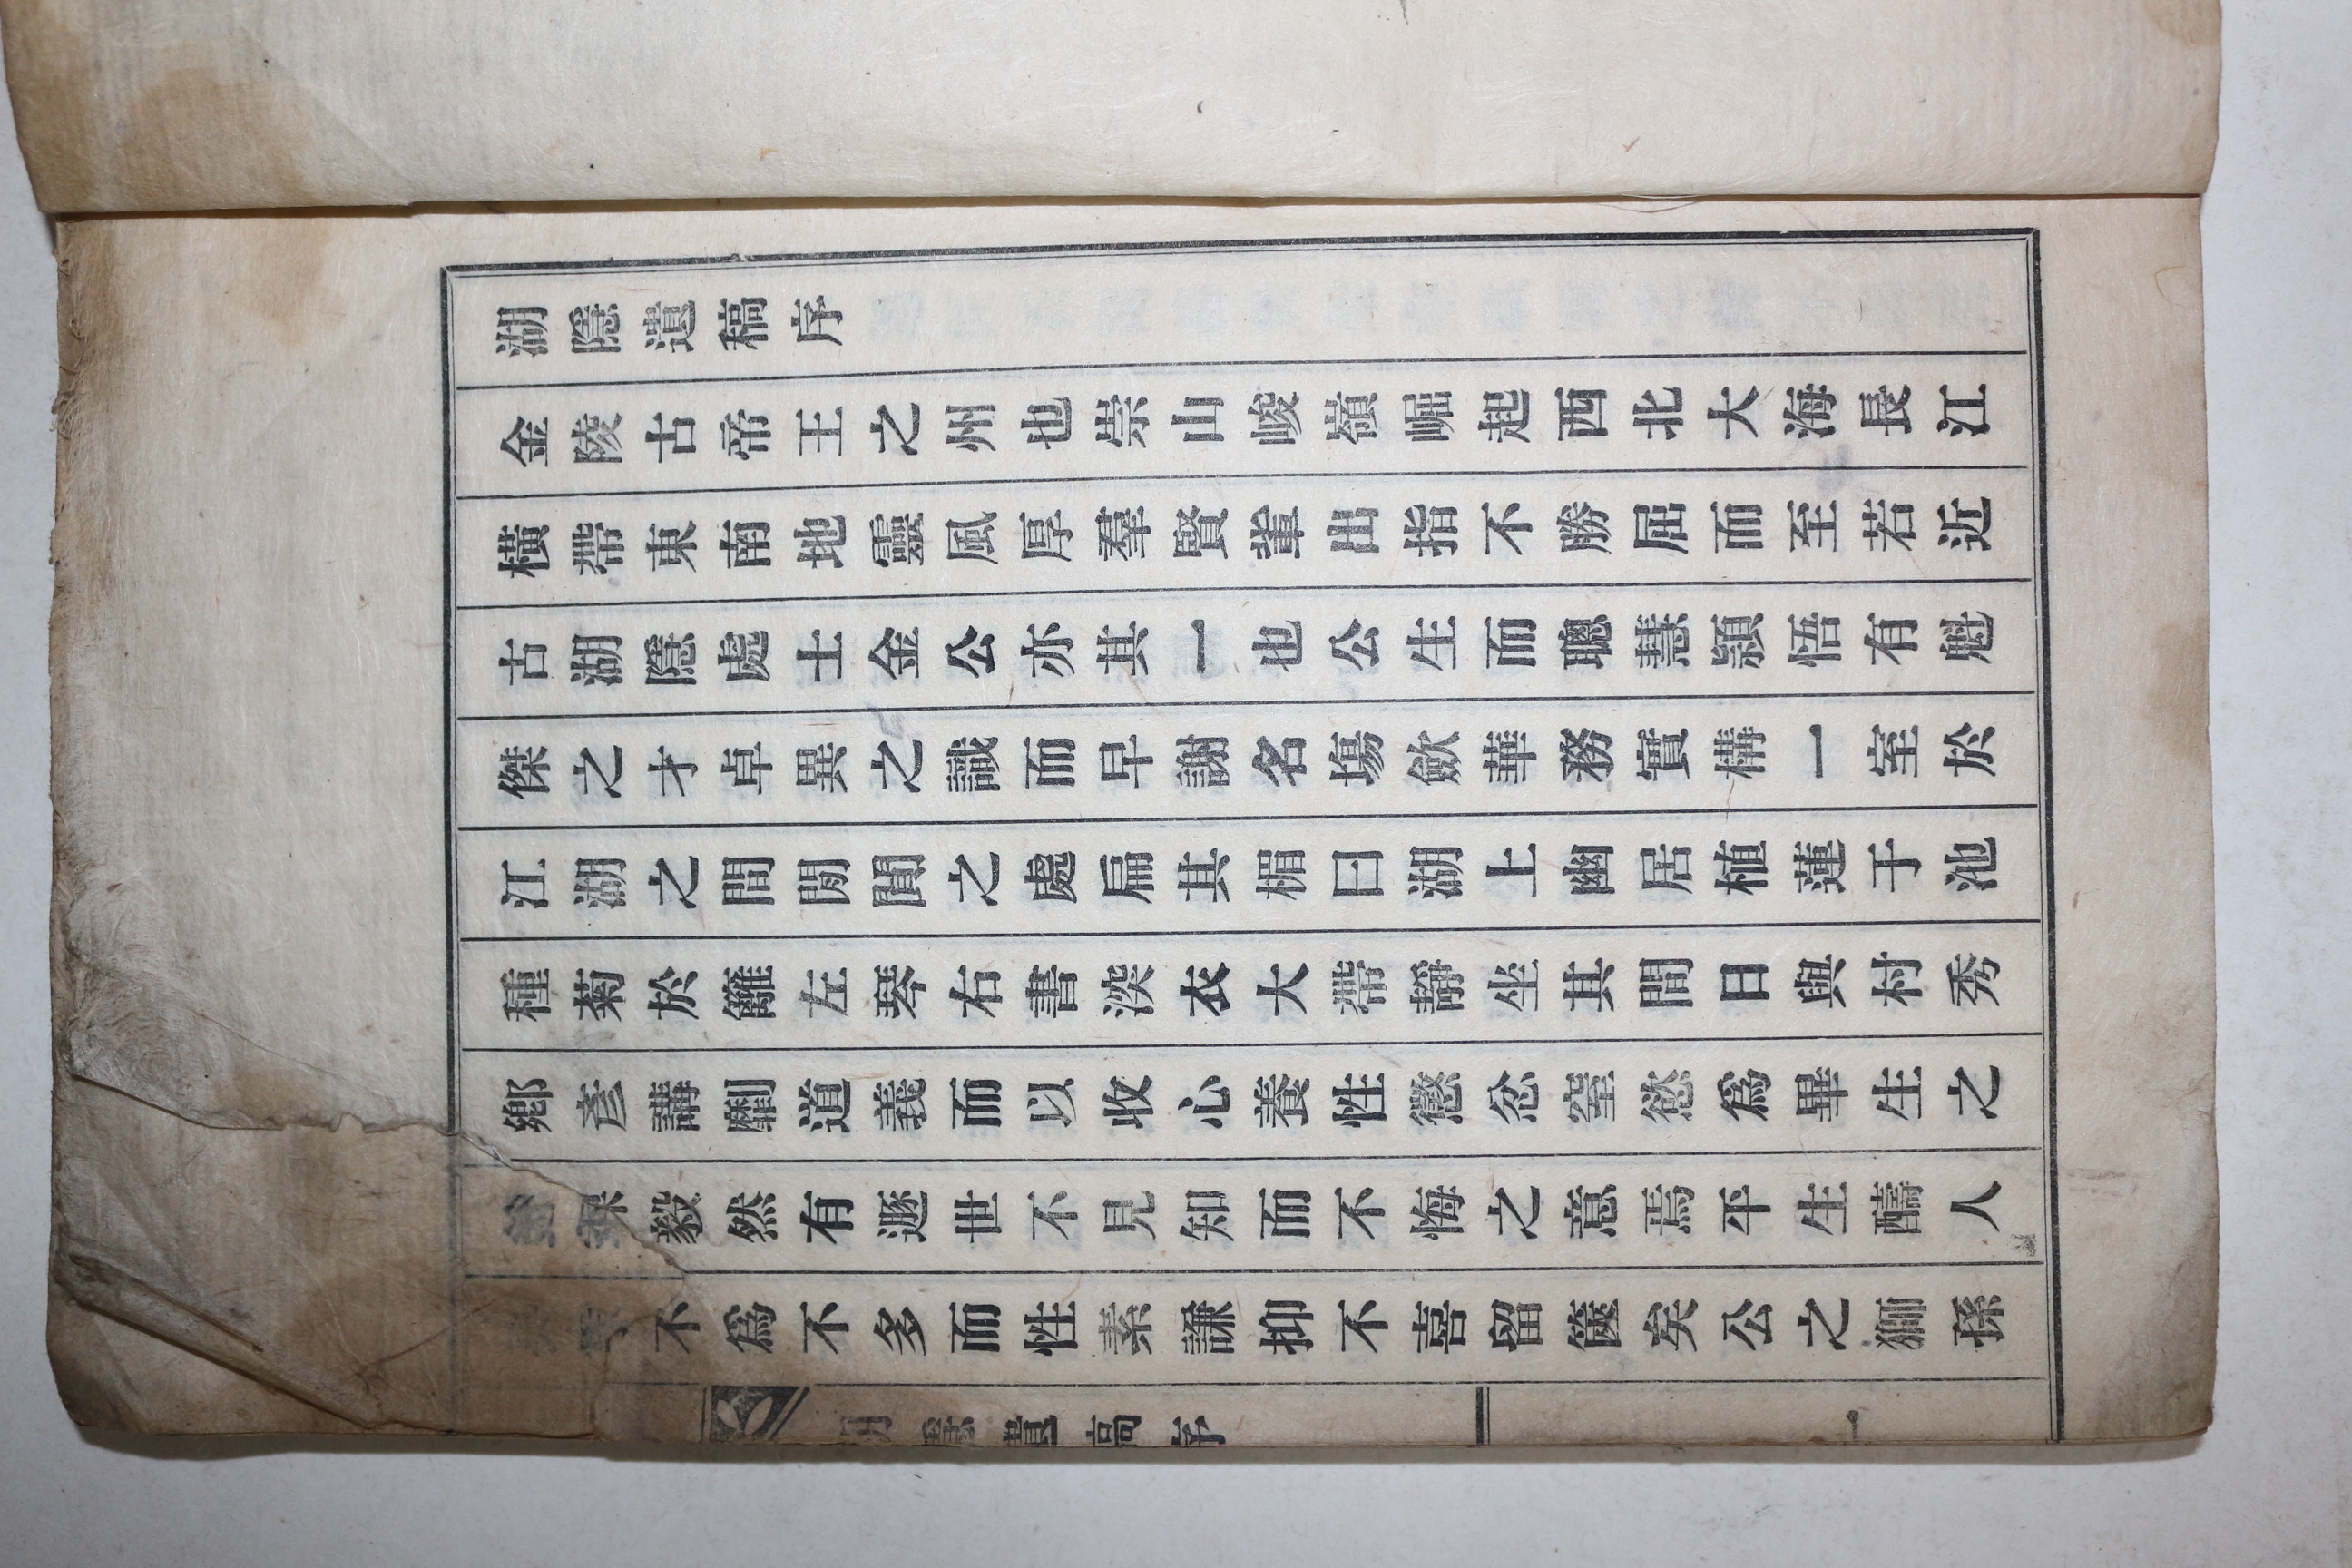 湖隱遺稿序
金陵古帝王之州也崇山峻嶺崛起西北大海長江
橫帶東南地靈風厚羣賢輩出指不勝屈而至若近
古湖隱處士金公亦其一也公生而聰慧穎悟有魁
傑之才卓異之識而早謝名塲斂華務實構一室於
江湖之間閒闃之處扁其楣曰湖上幽居植蓮于池
種菊於籬左琴右書深衣大帶靜坐其間日與村秀
鄕彥講劘道義而以收心養性懲忿窒慾爲畢生之
毅然有遯世不見知而不悔之意焉平生醻人
不爲不多而性素謙抑不喜留篋矣公之獅孫
湖隱遺稿序
一